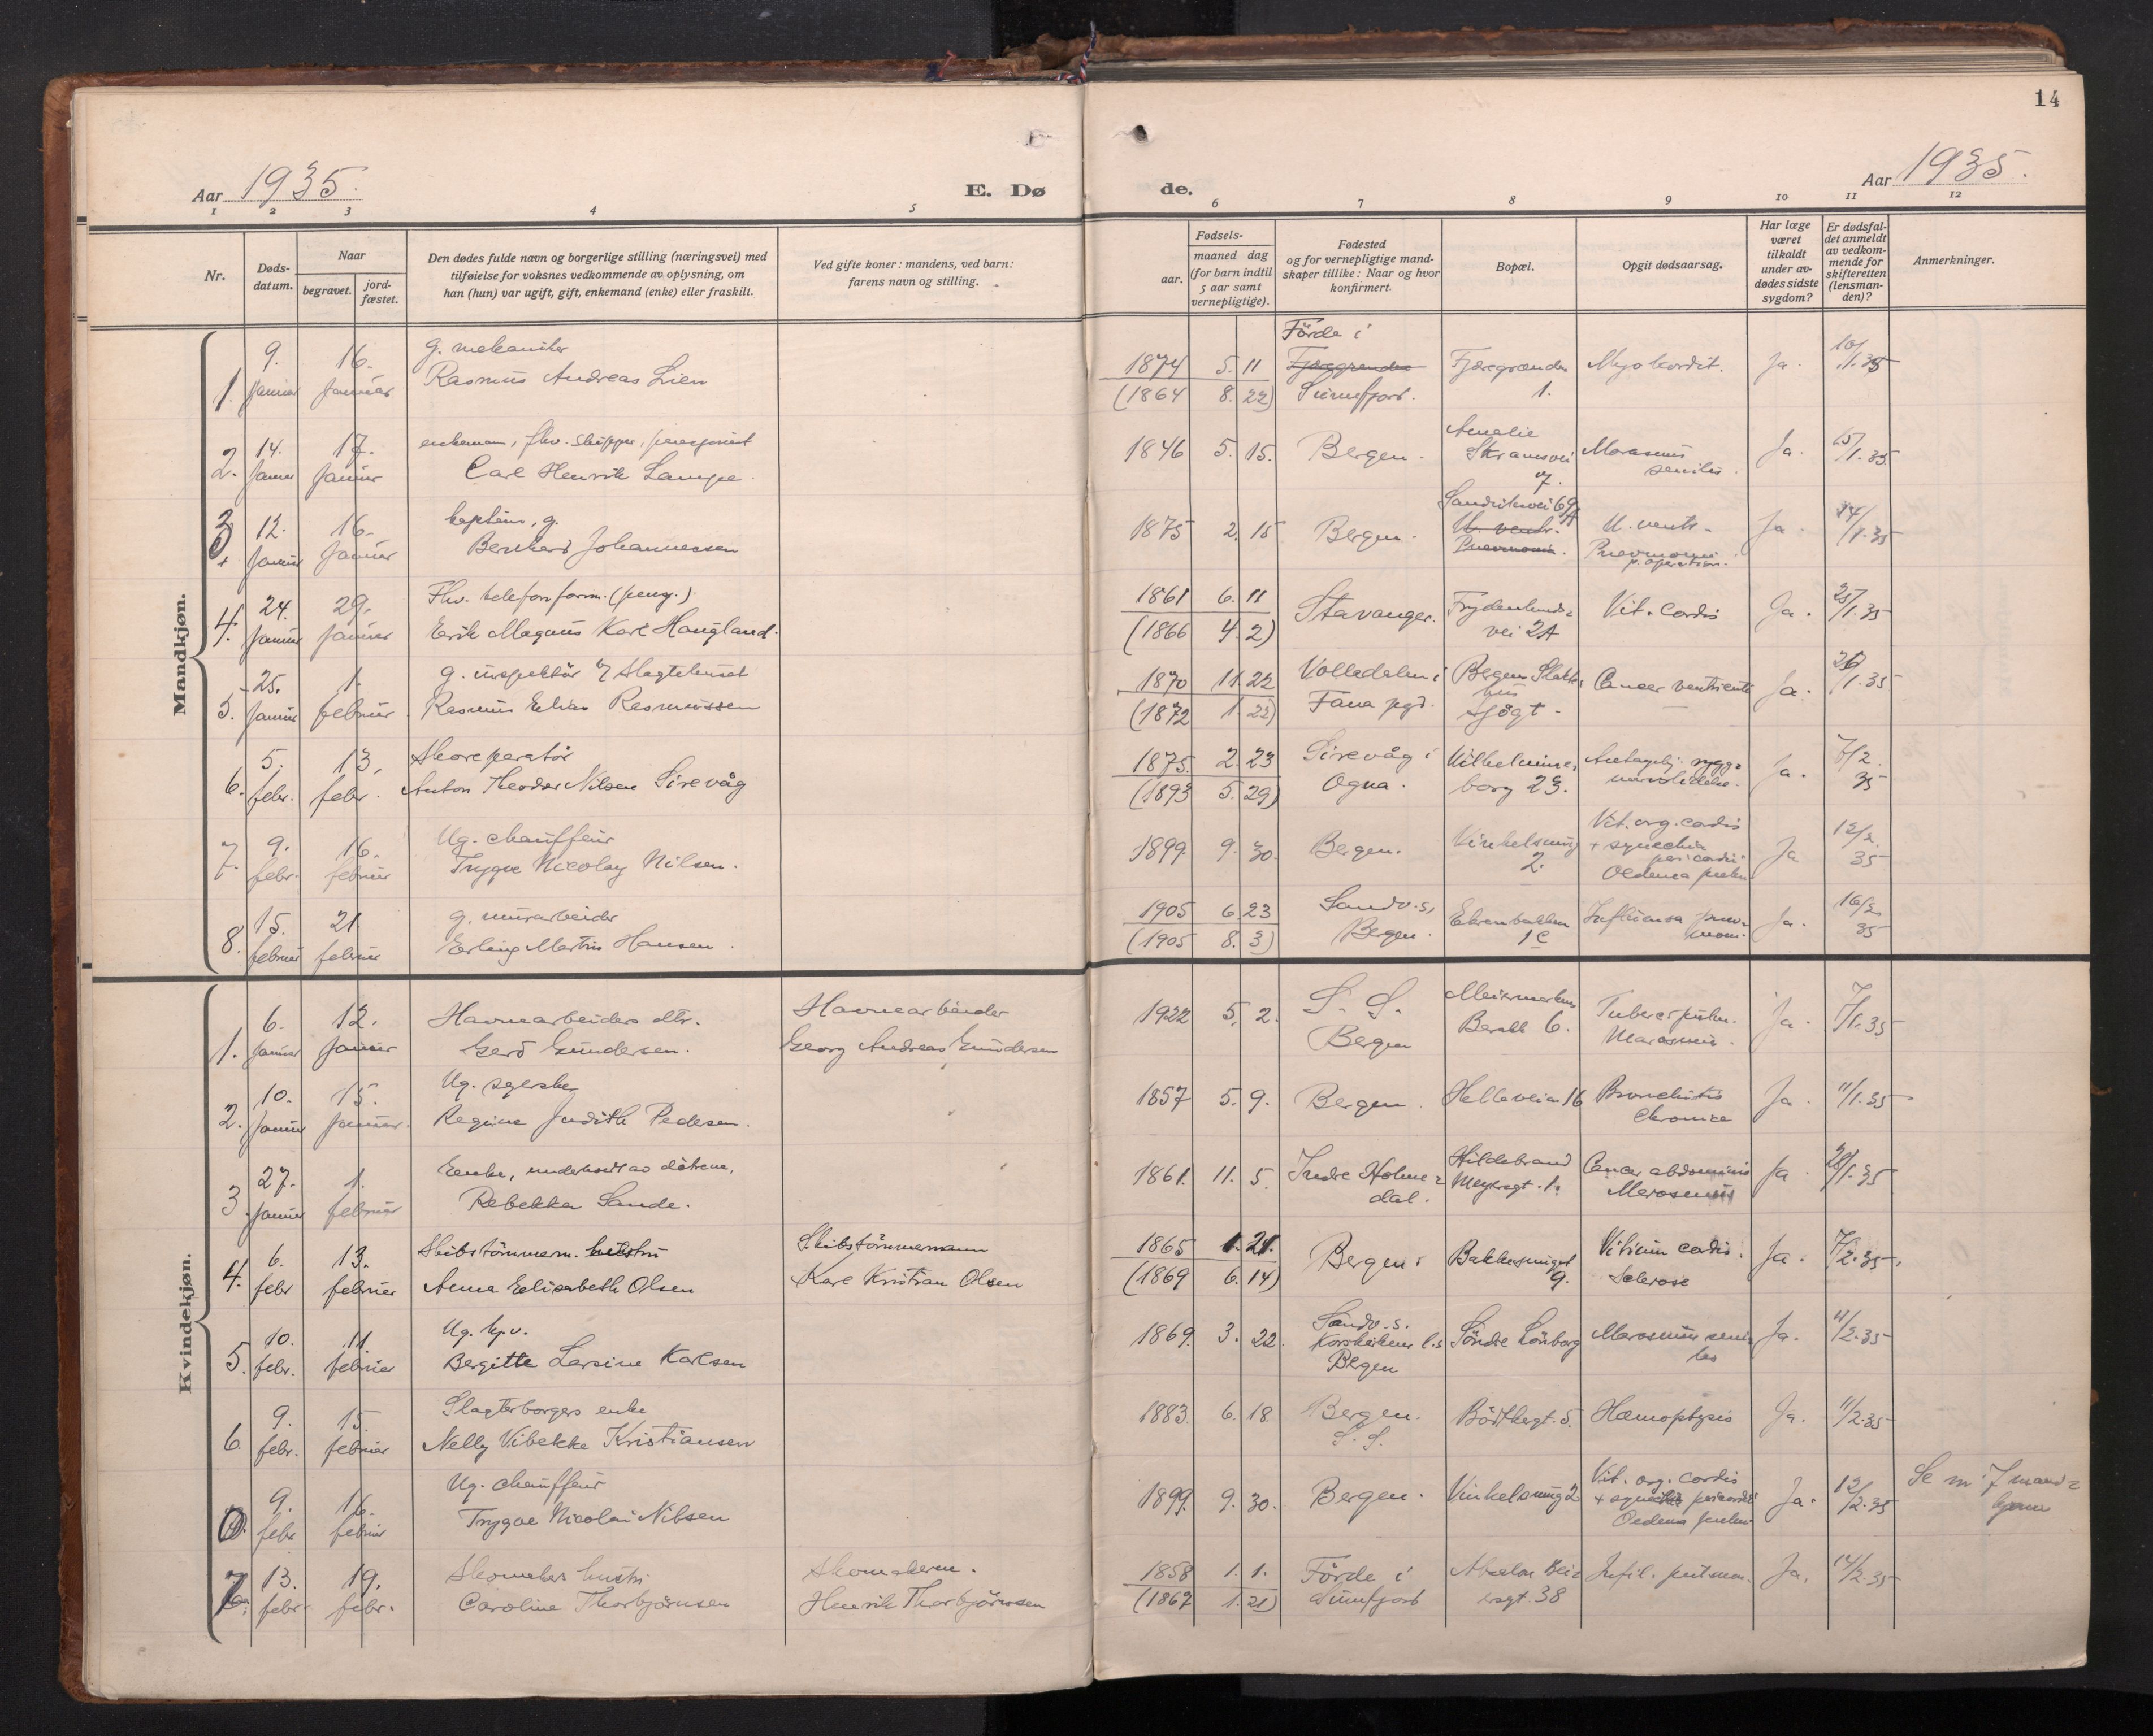 14
Aar 1935.
E. Dø
de.
Aar 1935.
1 2 3 4 5 6 7 8 9 10 11 12
Nr.
Døds-
datum.
Naar
begravet.
jord-
fæstet.
Den dødes fulde navn og borgerlige stilling (næringsvei) med
tilføielse for voksnes vedkommende av oplysning, om
han (hun) var ugift, gift, enkemand (enke) eller fraskilt.
Ved gifte koner: mandens, ved barn:
farens navn og stilling.
Fødsels-
aar.
maaned dag
(for barn indtil
5 aar samt
vernepligtige).
Fødested
og for vernepligtige mand-
skaper tillike: Naar og hvor
konfirmert.
Bopæl.
Opgit dødsaarsag.
Har læge
været
tilkaldt
under av-
dødes sidste
sygdom?
Er dødsfal-
det anmeldt
av vedkom-
mende for
skifteretten
(lensman-
den)?
Anmerkninger.
Mandkjøn.
1. 9. Januar 16. Januar
g. mekaniker
Rasmus Andreas Lien
1874 5. 11
(1864 8. 22)
Förde i
Sunnfjord.
1.
Myokardit.
Ja.
10/1.35
2. 14. Januar 17. Januar
enkemann, fhv. skipper,
Carl Henrik Lampe.
1846 5. 15.
Bergen.
Amalie
Skramsvei
7.
Marasmus
senilis.
Ja.
15/1.35
3 12. Januar 16. Januar
kaptein, g.
Bernhard Johannessen
1875 2. 15
Bergen.
Sandviksvei 69A
U. ventr.
Pneumonia.
U. ventr.
Pneumoni
p. operation.
Ja.
14/1.35
4. 24. Januar 29. Januar
Fhv. telefonform. (peng.)
Erik Magnus Karl Haugland.
1861 6. 11
(1866 4. 2)
Stavanger.
Frydenlunds-
vei 2A
Vit. Cordis
Ja.
25/1.35
5. 25. Januar 1. februar
g. inspektör v/ Slagtehuset
Rasmus Elias Rasmussen
1870 11. 22
(1872 1. 22)
Fana pgd.
Bergens Slakte-
hus
Cancer ventriculi
Ja.
26/1.35
6. 5. febr. 13. febr.
Skoreparatör
Anton Theodor Nilsen Sirevåg
1875. 2. 23
(1893 5. 29)
Sirevåg i
Ogna.
Wilhelmine-
borg 23.
Ja.
7/2.
35
7. 9. febr. 16. februar
Ug. chauffeur
Trygve Nicolay Nilsen.
1899. 9. 30.
Bergen.
Vinkelsmug
2.
Vit. org. cordis
+ synechia
pericardii
Oedema pulm.
Ja
12/2.
35
8. 15. februar 21. februar
g. murarbeider
Erling Martin Hansen.
1905 6. 23
(1905 8. 3)
Sandv. s,
Bergen.
1c
Influensa pneu-
moni.
Ja.
16/2
35
Kvindekjøn.
1. 6. Januar 12. Januar
Havnearbeiders dtr.
Gerd Gundersen.
Havnearbeider
Georg Andreas Gundersen
1922 5. 2.
S. S.
Bergen
6.
Tuberc. pulm.
Marasmus.
Ja.
7/1.35
2. 10. Januar 15. Januar.
Ug. syerske
Regine Judith Pedersen.
1857 5. 9.
Bergen.
Helleveien 16
Bronchitis
Chronica
Ja.
11/1.35
3. 27. Januar 1. februar
Enke, underholdt av döttrene,
Rebekka Sande.
1861. 11. 5.
Indre Holme-
dal.
Hildebrand
Meyersgt. 1.
Cancer abdominis
Marasmus
Ja.
28/1.35
4. 6. febr 13. februar
Skibstömmerm. hustru
Anna Elisabeth Olsen
Skibstömmermann
Karl Kristian Olsen
1865 1. 21.
(1869 6. 14)
Bergen
Bakkesmuget
9.
Vitium cordis.
Sclerose
Ja.
7/2.35.
5. 10. febr. 11. februar
Ug. hpv.
Bergitte Larsine Karlsen
1869. 3. 22.
Sandv. s.
Korskirkens
Bergen
Söndre Lönborg
Marasmus seni-
lis
Ja.
11/2.35
6. 9. febr. 15. februar
Slagterborgers enke
Nelly Vibekke Kristiansen
1883. 6. 18.
Bergen.
S. S.
Bödkergt. 5.
Hæmoptysis
Ja.
11/2.35
0. 9. febr 16. februar
Ug. chauffeur
Trygve Nicolai Nilsen
1899. 9. 30.
Bergen.
Vinkelsmug 2
Vit. org. cordis
+ synechia pericardii
Oedema pulm.
Ja.
12/2.35
Se nr. 7 mand-
kjønn
7. 13. febr. 19. febr.
Skomakers hustru
Caroline Thorbjörnsen
Skomakerm.
Henrik Thorbjörnsen
1858 1. 1.
(1867 1. 21)
Förde i
Sunnfjord
38
Ja.
14/2.35